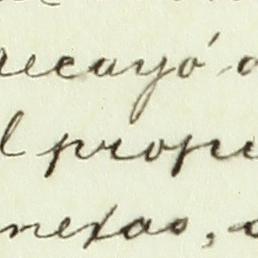 recayó
l prope
nexas,